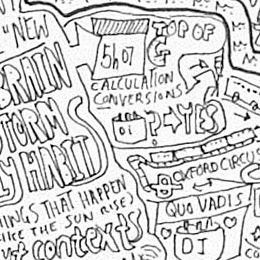 "NEW
BRAIN
STORM
HABIT
THINGS THAT HAPPEN
LIKE THE SUN RISE)
contexts
5h07
TOP OF
CALCULATION
CONVERSIONS
01
P→YES
OXFORD CIRCUS
QUO VADIS
DI